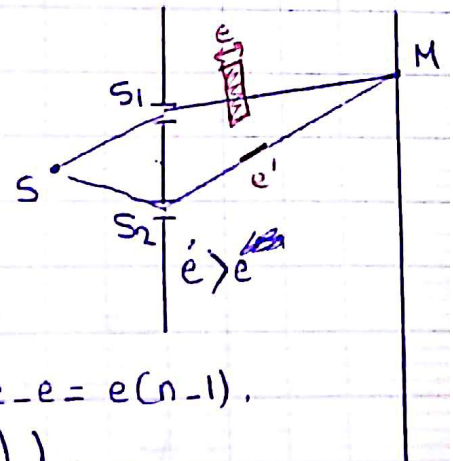 e
M
S1
S
e'
S2
e' > e
- e = e(n-1).
))